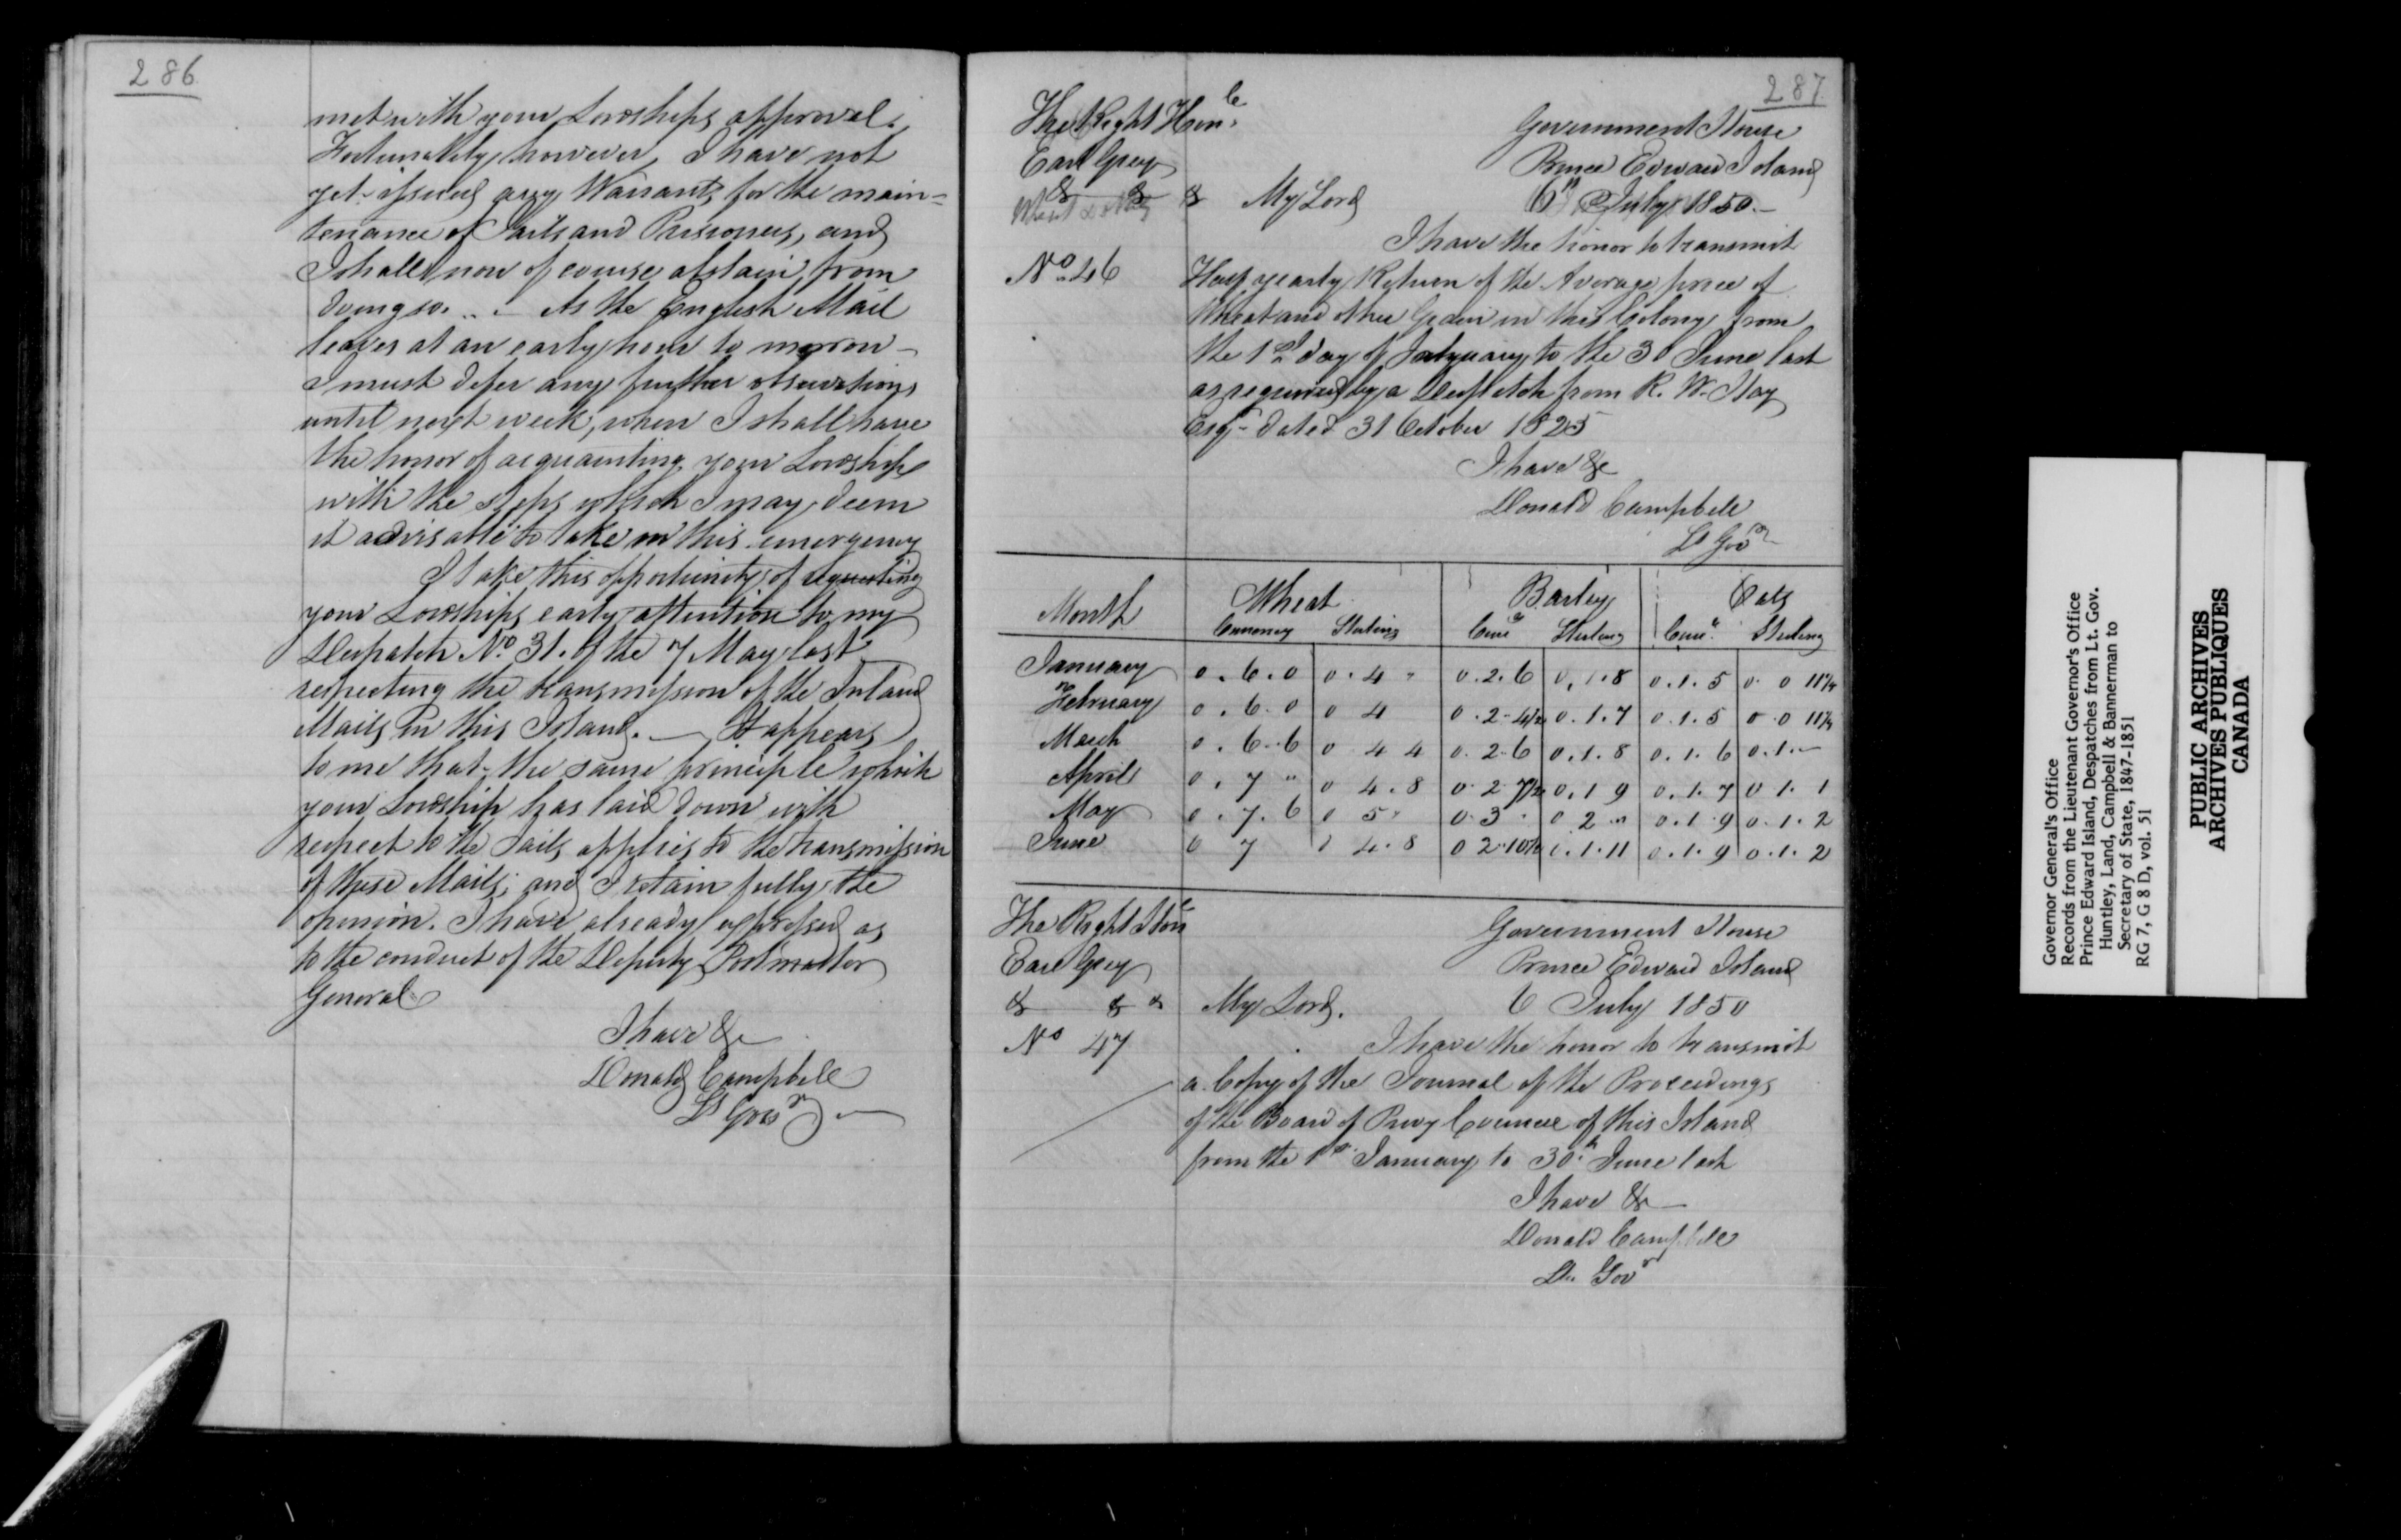 286
met with your Lordships approval.
Fortunately, however, I have not
yet issued any Warrants for the main=
tenance of Jails and Prisoners, and
I shall now of course abstain from
doing so. .. . As the English Mail
leaves at an early hour to morrow –
I must defer any further observations
until next week, when I shall have
the honor of acquainting your Lordship
with the steps which I may deem
it advisable to take in this emergency
I take this opportunity of requesting
your Lordships early attention to my
Despatch No. 31. of the 7 May last
respecting the transmission of the Inland
Mails in this Island. — It appears
to me that the same principle which
your Lordship has laid down with
respect to the Jails applies to the transmission
of these Mails; and I retain fully the
opinion. I have already expressed as
to the conduct of the Deputy Postmaster
General
I have &c
Donald Campbell
Lt Govr
287.
The Right Honble
Earl Grey
& & &
Government House
Prince Edward Island
My Lord
6th July 1850.—
No. 46
I have the honor to transmit
Half yearly Return of the Average price of
Wheat and other Grain in this Colony from
the 1st day of January to the 30 June last
as required by a Despatch from R. W. Hay
Esqr dated 31 October 1825
I have &c
Donald Campbell
Lt Govr
Month Wheat Barley Oats
Currency Sterling Curry Sterling Curry Sterling
January 0.6.0 0.4 " 0.2.6 0.1.8 0.1.5 0.0 11¼
February 0.6.0 0 4 0.2.4½ 0.1.7 0.1.5 0.0 11¼
March 0.6.6 0 4 4 0.2.6 0.1.8 0.1.6 0.1.—
April 0.7 " 0 4.8 0.2 7½ 0.1 9 0.1.7 0 1. 1
May 0.7.6 0 5 " 0.3 . 0 2 " 0.1.9 0.1.2
June 0 7 0 4.8 0 2.10½ 0.1.11 0.1.9 0.1.2
The Right Honle
Earl Grey
& & &
Government House
Prince Edward Island
My Lord.
6 July 1850
No 47
I have the honor to transmit
a Copy of the Journal of the Proceedings
of the Board of Privy Council of this Island
from the 1st January to 30th June last
I have &c
Donald Campbell
Lt. Govr
Governor General's Office
Records from the Lieutenant Governor's Office
Prince Edward Island, Despatches from Lt. Gov.
Huntley, Land, Campbell & Bannerman to
Secretary of State, 1847-1851
RG 7, G 8 D, vol. 51
PUBLIC ARCHIVES
ARCHIVES PUBLIQUES
CANADA